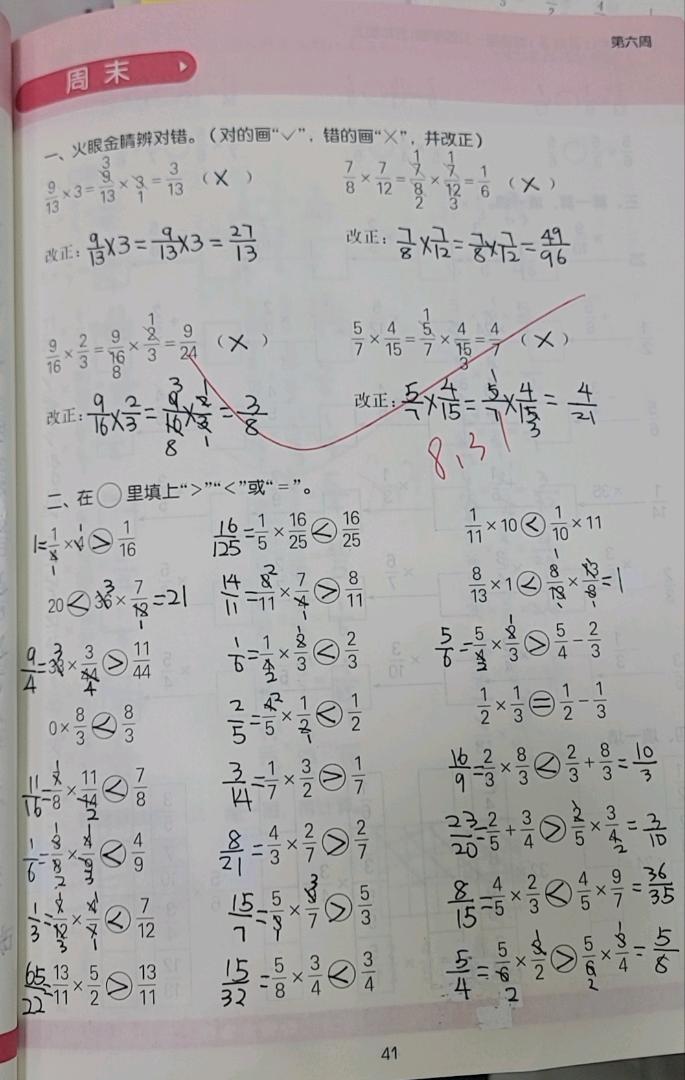 第六周
周末
一、火眼金睛辨对错。(对的画“✓”,错的画“×”,并改正)
9/13 × 3 = 9/13 × 3/1 = 3/13 (×) 7/8 × 7/12 = 7/8 × 7/12 = 1/6 (×)
改正: 9/13 × 3 = 9/13 × 3 = 27/13 改正: 7/8 × 7/12 = 7/8 × 7/12 = 49/96
9/16 × 2/3 = 9/16 × 2/3 = 9/24 (×) 5/7 × 4/15 = 5/7 × 4/15 = 4/7 (×)
改正: 9/16 × 2/3 = 9/16 × 2/3 = 3/8 改正: 5/7 × 4/15 = 5/7 × 4/15 = 4/21
8,31
二、在○里填上“>”“<”或“=”。
1 = 1/4 × 4 > 1/16 16/125 = 1/5 × 16/25 < 16/25 1/11 × 10 < 1/10 × 11
20 < 36 × 7/12 = 21 14/11 = 8/11 × 7/4 > 8/11 8/13 × 1 < 8/13 × 13/8 = 1
9/4 = 33 × 3/44 > 11/44 1/6 = 1/4 × 2/3 < 2/3 5/6 = 5/4 × 2/3 > 5/4 - 2/3
0 × 8/3 < 8/3 2/5 = 4/5 × 1/2 < 1/2 1/2 × 1/3 = 1/2 - 1/3
11/16 = 7/8 × 11/14 < 7/8 3/14 = 1/7 × 3/2 > 1/7 16/9 = 2/3 × 8/3 < 2/3 + 8/3 = 10/3
1/6 = 3/8 × 4/9 < 4/9 8/21 = 4/3 × 2/7 > 2/7 23/20 = 2/5 + 3/4 > 2/5 × 3/4 = 3/10
1/3 = 7/12 × 4/7 < 7/12 15/7 = 5/3 × 9/7 > 5/3 8/15 = 4/5 × 2/3 < 4/5 × 9/7 = 36/35
65/22 = 13/11 × 5/2 > 13/11 15/32 = 5/8 × 3/4 < 3/4 5/4 = 5/6 × 3/2 > 5/6 × 3/4 = 5/8
41